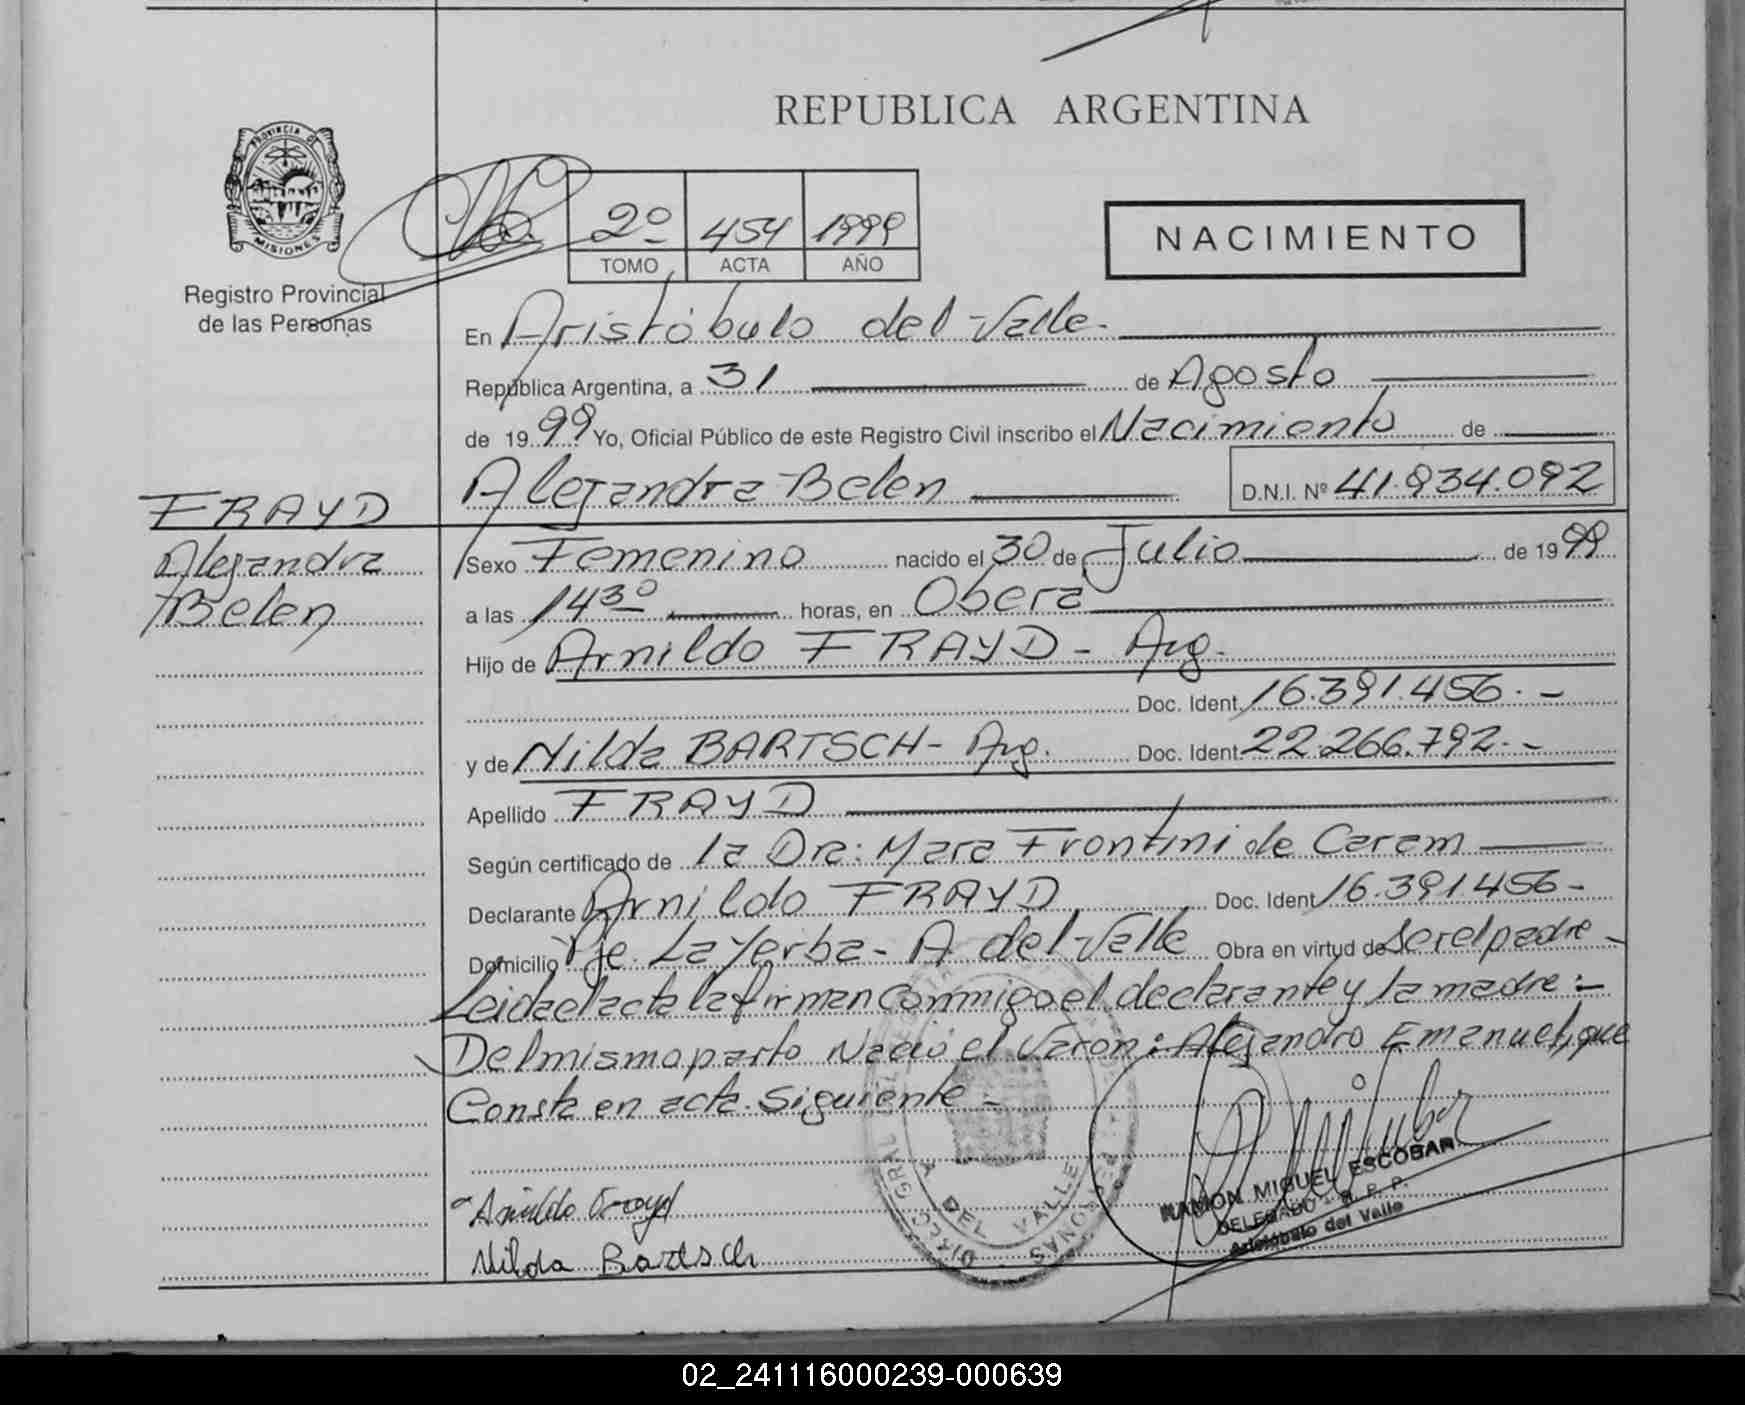 REPUBLICA ARGENTINA
PROVINCIA DE
MISIONES
Registro Provincial
de las Personas
2º 454 1999
TOMO ACTA AÑO
NACIMIENTO
En Aristóbulo del Valle.
República Argentina, a 31 de Agosto
de 1999 Yo, Oficial Público de este Registro Civil inscribo el Nacimiento de
Alejandra Belen D.N.I. Nº 41.934.092
FRAYD
Alejandra
Belen
Sexo Femenino nacido el 30 de Julio de 1999
a las 14 30 horas, en Oberá
Hijo de Arnildo FRAYD - Arg.
Doc. Ident. 16.391.456.-
y de Nilda BARTSCH - Arg. Doc. Ident. 22.266.792.-
Apellido FRAYD
Según certificado de la Dra: Mara Frontini de Caram
Declarante Arnildo FRAYD Doc. Ident. 16.391.456-
Domicilio Pje. La Yerba - A del Valle Obra en virtud de ser el padre -
Leida el acta la firman conmigo el declarante y la madre:-
Del mismo parto Nació el Varon: Alejandro Emanuel, que
Consta en acta siguiente -
Arnildo Frayd
Nilda Bartsch
A. DEL VALLE
RAMON MIGUEL ESCOBAR
DELEGADO - R. P. P.
Aristóbulo del Valle
02_241116000239-000639